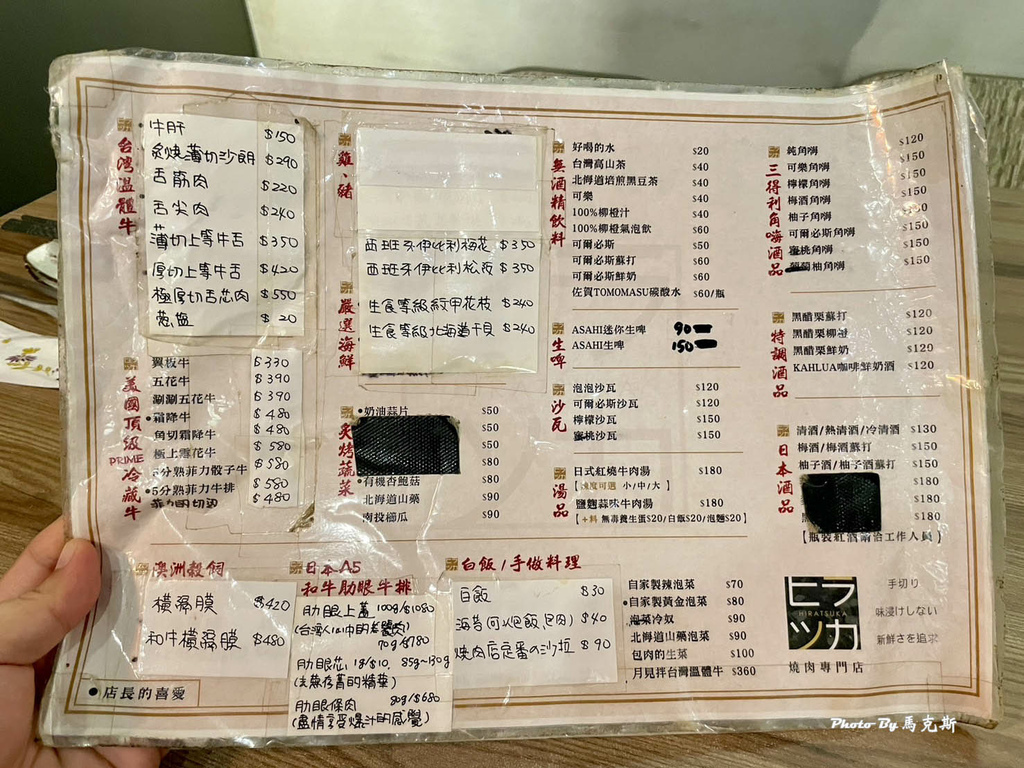 台灣溫體牛
牛肝 $150
炙燒薄切沙朗 $290
舌筋肉 $220
舌尖肉 $240
薄切上等牛舌 $350
厚切上等牛舌 $420
極厚切舌芯肉 $550
蔥鹽 $20
美國頂級PRIME冷藏牛
翼板牛 $330
五花牛 $390
涮涮五花牛 $390
•霜降牛 $480
角切霜降牛 $480
極上霜花牛 $580
5分熟菲力骰子牛 $580
•5分熟菲力牛排 $580
菲力 $480
雞、豬
西班牙伊比利梅花 $350
西班牙伊比利松阪 $350
嚴選海鮮
生食等級紋甲花枝 $240
生食等級北海道干貝 $240
炙烤蔬菜
•奶油蒜片 $50
$50
$50
$80
•有機杏鮑菇 $80
北海道山藥 $90
南投櫛瓜 $90
無酒精飲料
好喝的水 $20
台灣高山茶 $40
北海道焙煎黑豆茶 $40
可樂 $40
100%柳橙汁 $40
100%柳橙氣泡飲 $60
可爾必斯 $50
可爾必斯蘇打 $60
可爾必斯鮮奶 $60
佐賀TOMOMASU碳酸水 $60/瓶
生啤
ASAHI迷你生啤 90
ASAHI生啤 150
沙瓦
泡泡沙瓦 $120
可爾必斯沙瓦 $120
檸檬沙瓦 $150
蜜桃沙瓦 $150
湯品
日式紅燒牛肉湯 $180
【辣度可選 小/中/大】
鹽麴蒜味牛肉湯 $180
【+料 無毒養生蛋$20/白飯$20/泡麵$20】
三得利角嗨酒品
純角嗨 $120
可樂角嗨 $150
檸檬角嗨 $150
梅酒角嗨 $150
柚子角嗨 $150
可爾必斯角嗨 $150
蜜桃角嗨 $150
葡萄柚角嗨 $150
特調酒品
黑醋栗蘇打 $120
黑醋栗柳橙 $120
黑醋栗鮮奶 $120
KAHLUA咖啡鮮奶酒 $120
日本酒品
清酒/熱清酒/冷清酒 $130
梅酒/梅酒蘇打 $150
柚子酒/柚子酒蘇打 $150
$180
$180
$180
【瓶裝紅酒請洽工作人員】
澳洲穀飼
橫隔膜 $420
和牛橫隔膜 $480
日本A5
和牛肋眼牛排
肋眼上蓋 100g/$1080
90g/$780
肋眼芯 1g/$10, 85g~130g
肋眼條肉 80g/$680
(盡情享受爆汁的感覺)
白飯/手做料理
白飯 $30
海苔(可以包飯包肉) $40
燒肉店定番の沙拉 $90
自家製辣泡菜 $70
•自家製黃金泡菜 $80
泡菜冷奴 $90
北海道山藥泡菜 $90
包肉的生菜 $100
月見拌台灣溫體牛 $360
ヒラ
HIRATSUKA
ツカ
燒肉專門店
手切り
味浸けしない
新鮮さを追求
●店長的喜愛
Photo By 馬克斯